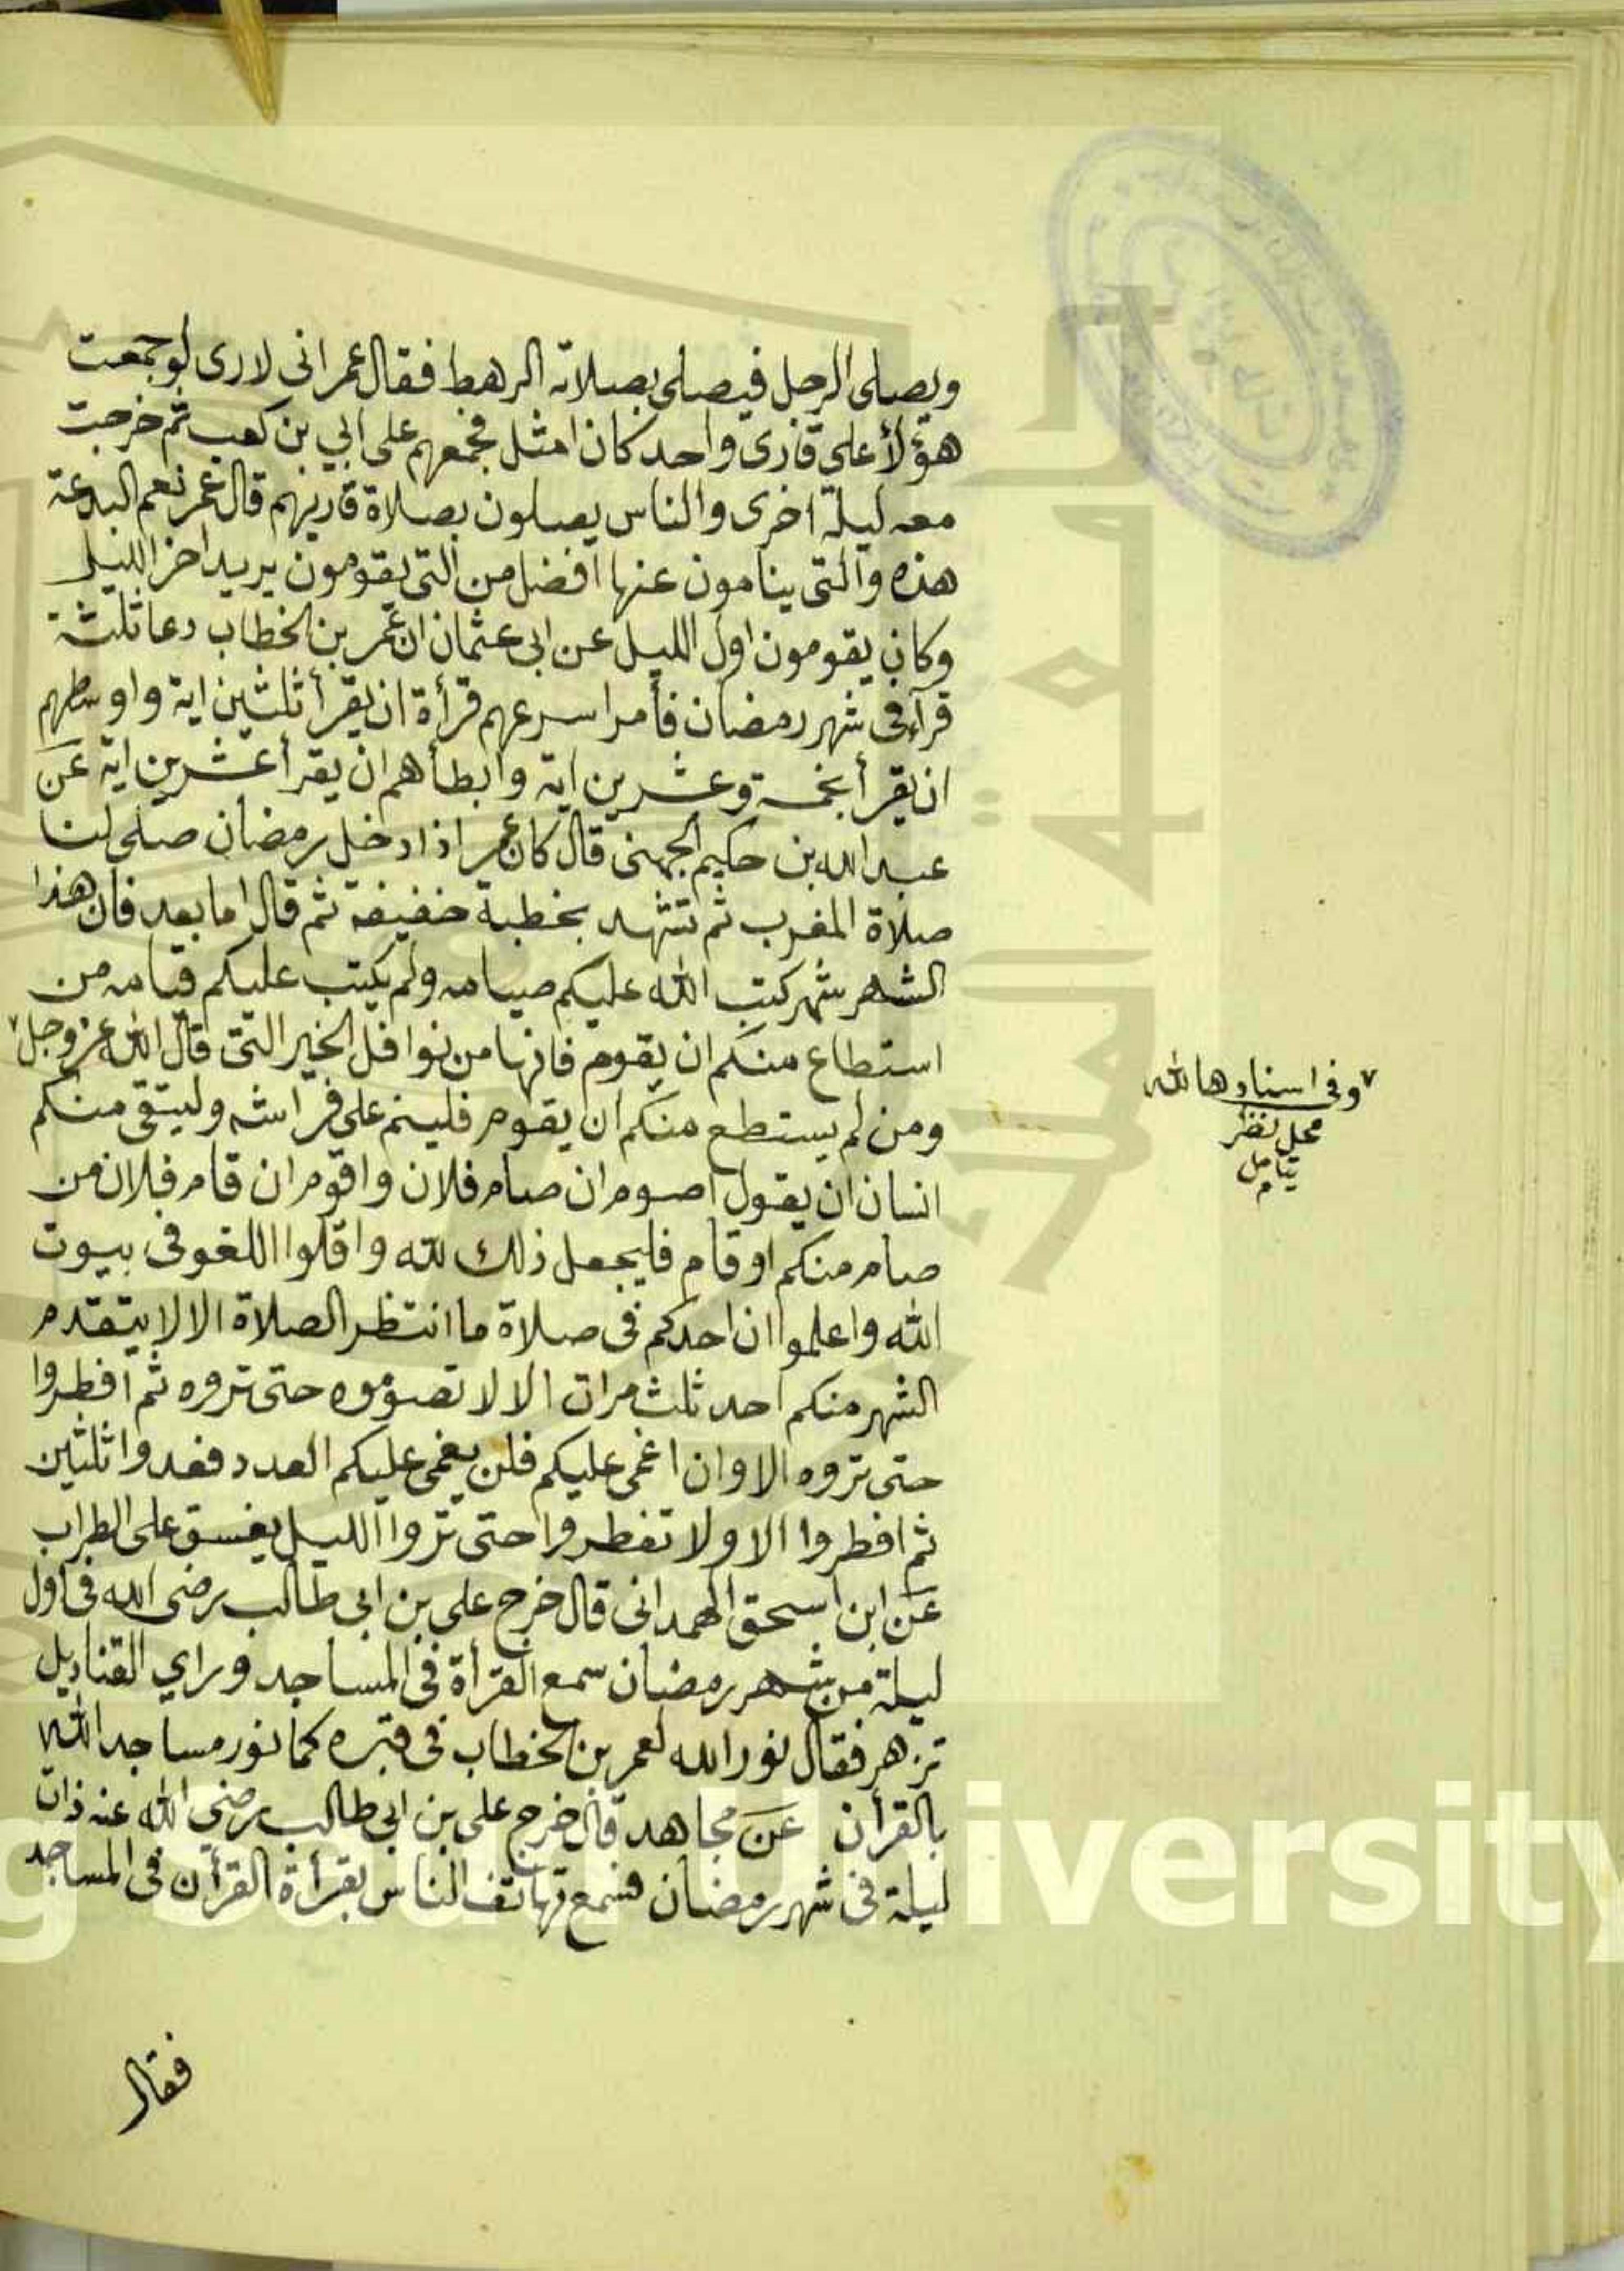 ويصلى الرجل فيصلى بصلاته الرهط فقال عمر انى لارى لو جمعت
هؤلأ على قارى واحد كان امثل فجمعهم على ابي بن كعب ثم خرجت
معه ليلة اخرى والناس يصلون بصلاة قاريهم قال عمر نعم البدعة
هذه والتى ينامون عنها افضل من التى يقومون يريد اخر الليل
وكان يقومون اول الليل عن ابى عثمان ان عمر بن الخطاب دعا ثلثة
قرآء فى شهر رمضان فأمر اسرعهم قرأة ان يقرأ ثلثين اية واوسطهم
ان يقرأ بخمسة وعشرين اية وابطأهم ان يقرأ عشرين اية عن
عبد الله بن حكيم الجهنى قال كان عمر اذا دخل رمضان صلى لنا
صلاة المغرب ثم تشهد بخطبة خفيفة ثم قال اما بعد فان هذا
الشهر شهر كتب الله عليكم صيامه ولم يكتب عليكم قيامه من
استطاع منكم ان يقوم فانها من نوافل الخير التى قال الله عز وجل ٧
ومن لم يستطع منكم ان يقوم فلينم على فراشه وليتقى منكم
انسان ان يقول اصوم ان صام فلان واقوم ان قام فلان من
صام منكم او قام فليجعل ذلك لله واقلوا اللغو فى بيوت
الله واعلموا ان احدكم فى صلاة ما انتظر الصلاة الا لا يتقدم
الشهر منكم احد ثلث مرات الا لا تصوموه حتى تروه ثم افطروا
حتى تروه الا وان اغمى عليكم فلن يغمى عليكم العدد فعدوا ثلثين
ثم افطروا الا ولا تفطروا حتى تروا الليل يغسق على الظراب
عن ابن اسحق الهمدانى قال خرج على بن ابى طالب رضى الله فى اول
ليلة من شهر رمضان سمع القرأة فى المساجد وراي القناديل
تزهر فقال نور الله لعمر بن الخطاب فى قبره كما نور مساجد الله
بالقرأن عن مجاهد قال خرج على بن ابى طالب رضي الله عنه ذات
ليلة فى شهر رمضان فسمع تهاتف الناس بقرأة القرأن فى المساجد
فقال
٧ وفى اسنادها لله
محل نظر
تامل